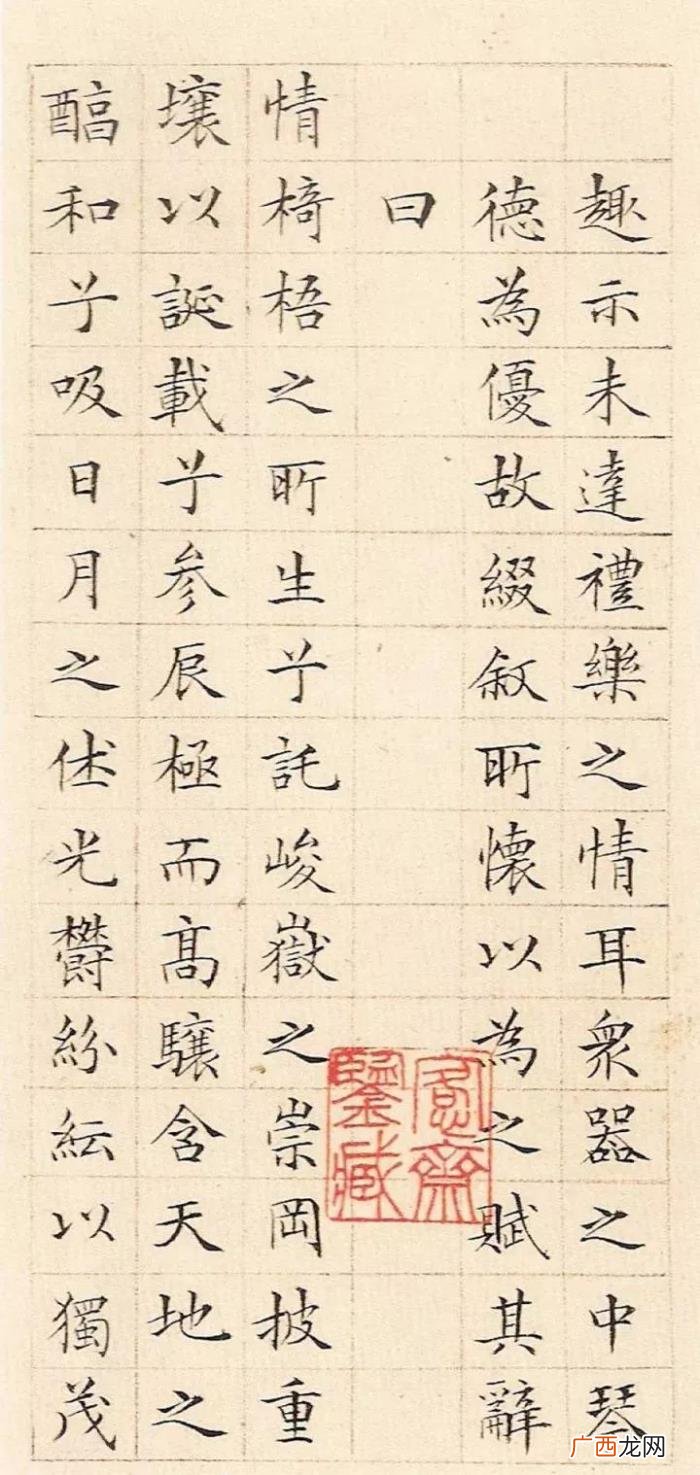 趣示未達禮樂之情耳衆器之中琴
德為優故綴叙所懷以為之賦其辭
曰
情椅梧之所生兮託峻嶽之崇岡披重
壤以誕載兮参辰極而髙驤含天地之
醕和兮吸日月之休光鬱紛紜以獨茂
愙齋鑒藏
广西龙网